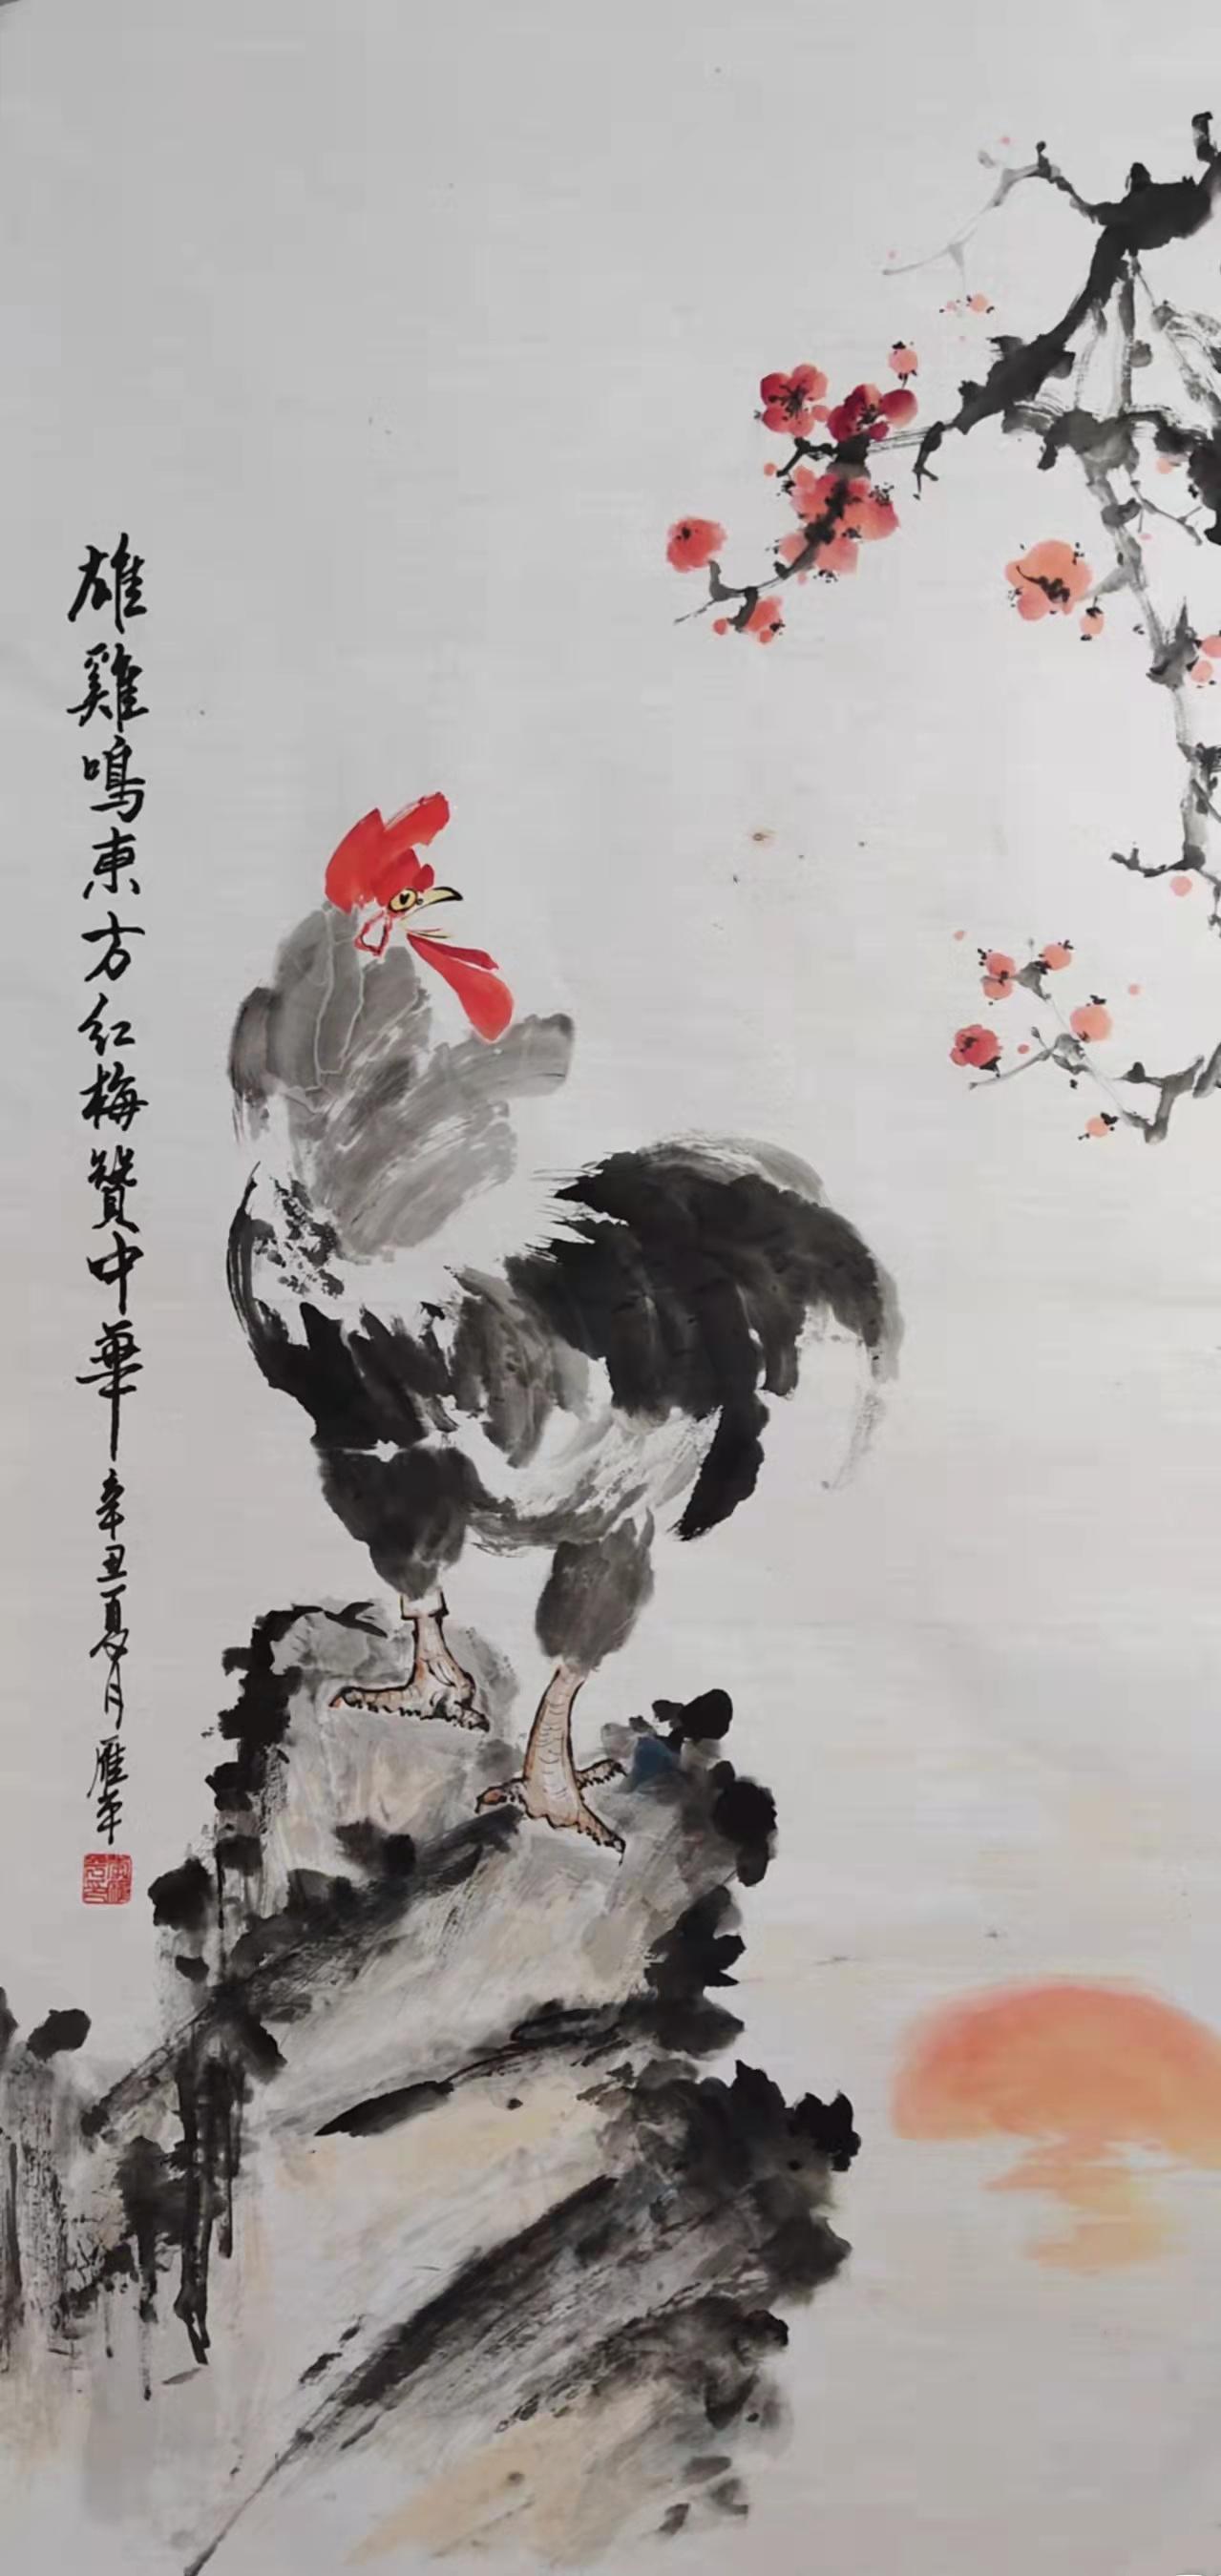 雄雞鳴東方红梅贊中華辛丑夏月雁平